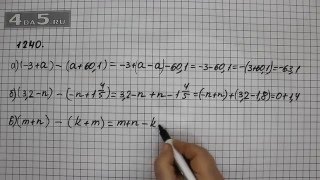 4DA5.RU
1240.
а)(-3+a) - (a+60,1) = -3+(a-a)-60,1 = -3-60,1 = -(3+60,1) = -63,1
б)(3,2-n) - (-n+1 4/5) = 3,2-n+n-1 4/5 = (-n+n)+(3,2-1,8) = 0+1,4
б)(m+n) - (k+m) = m+n-k